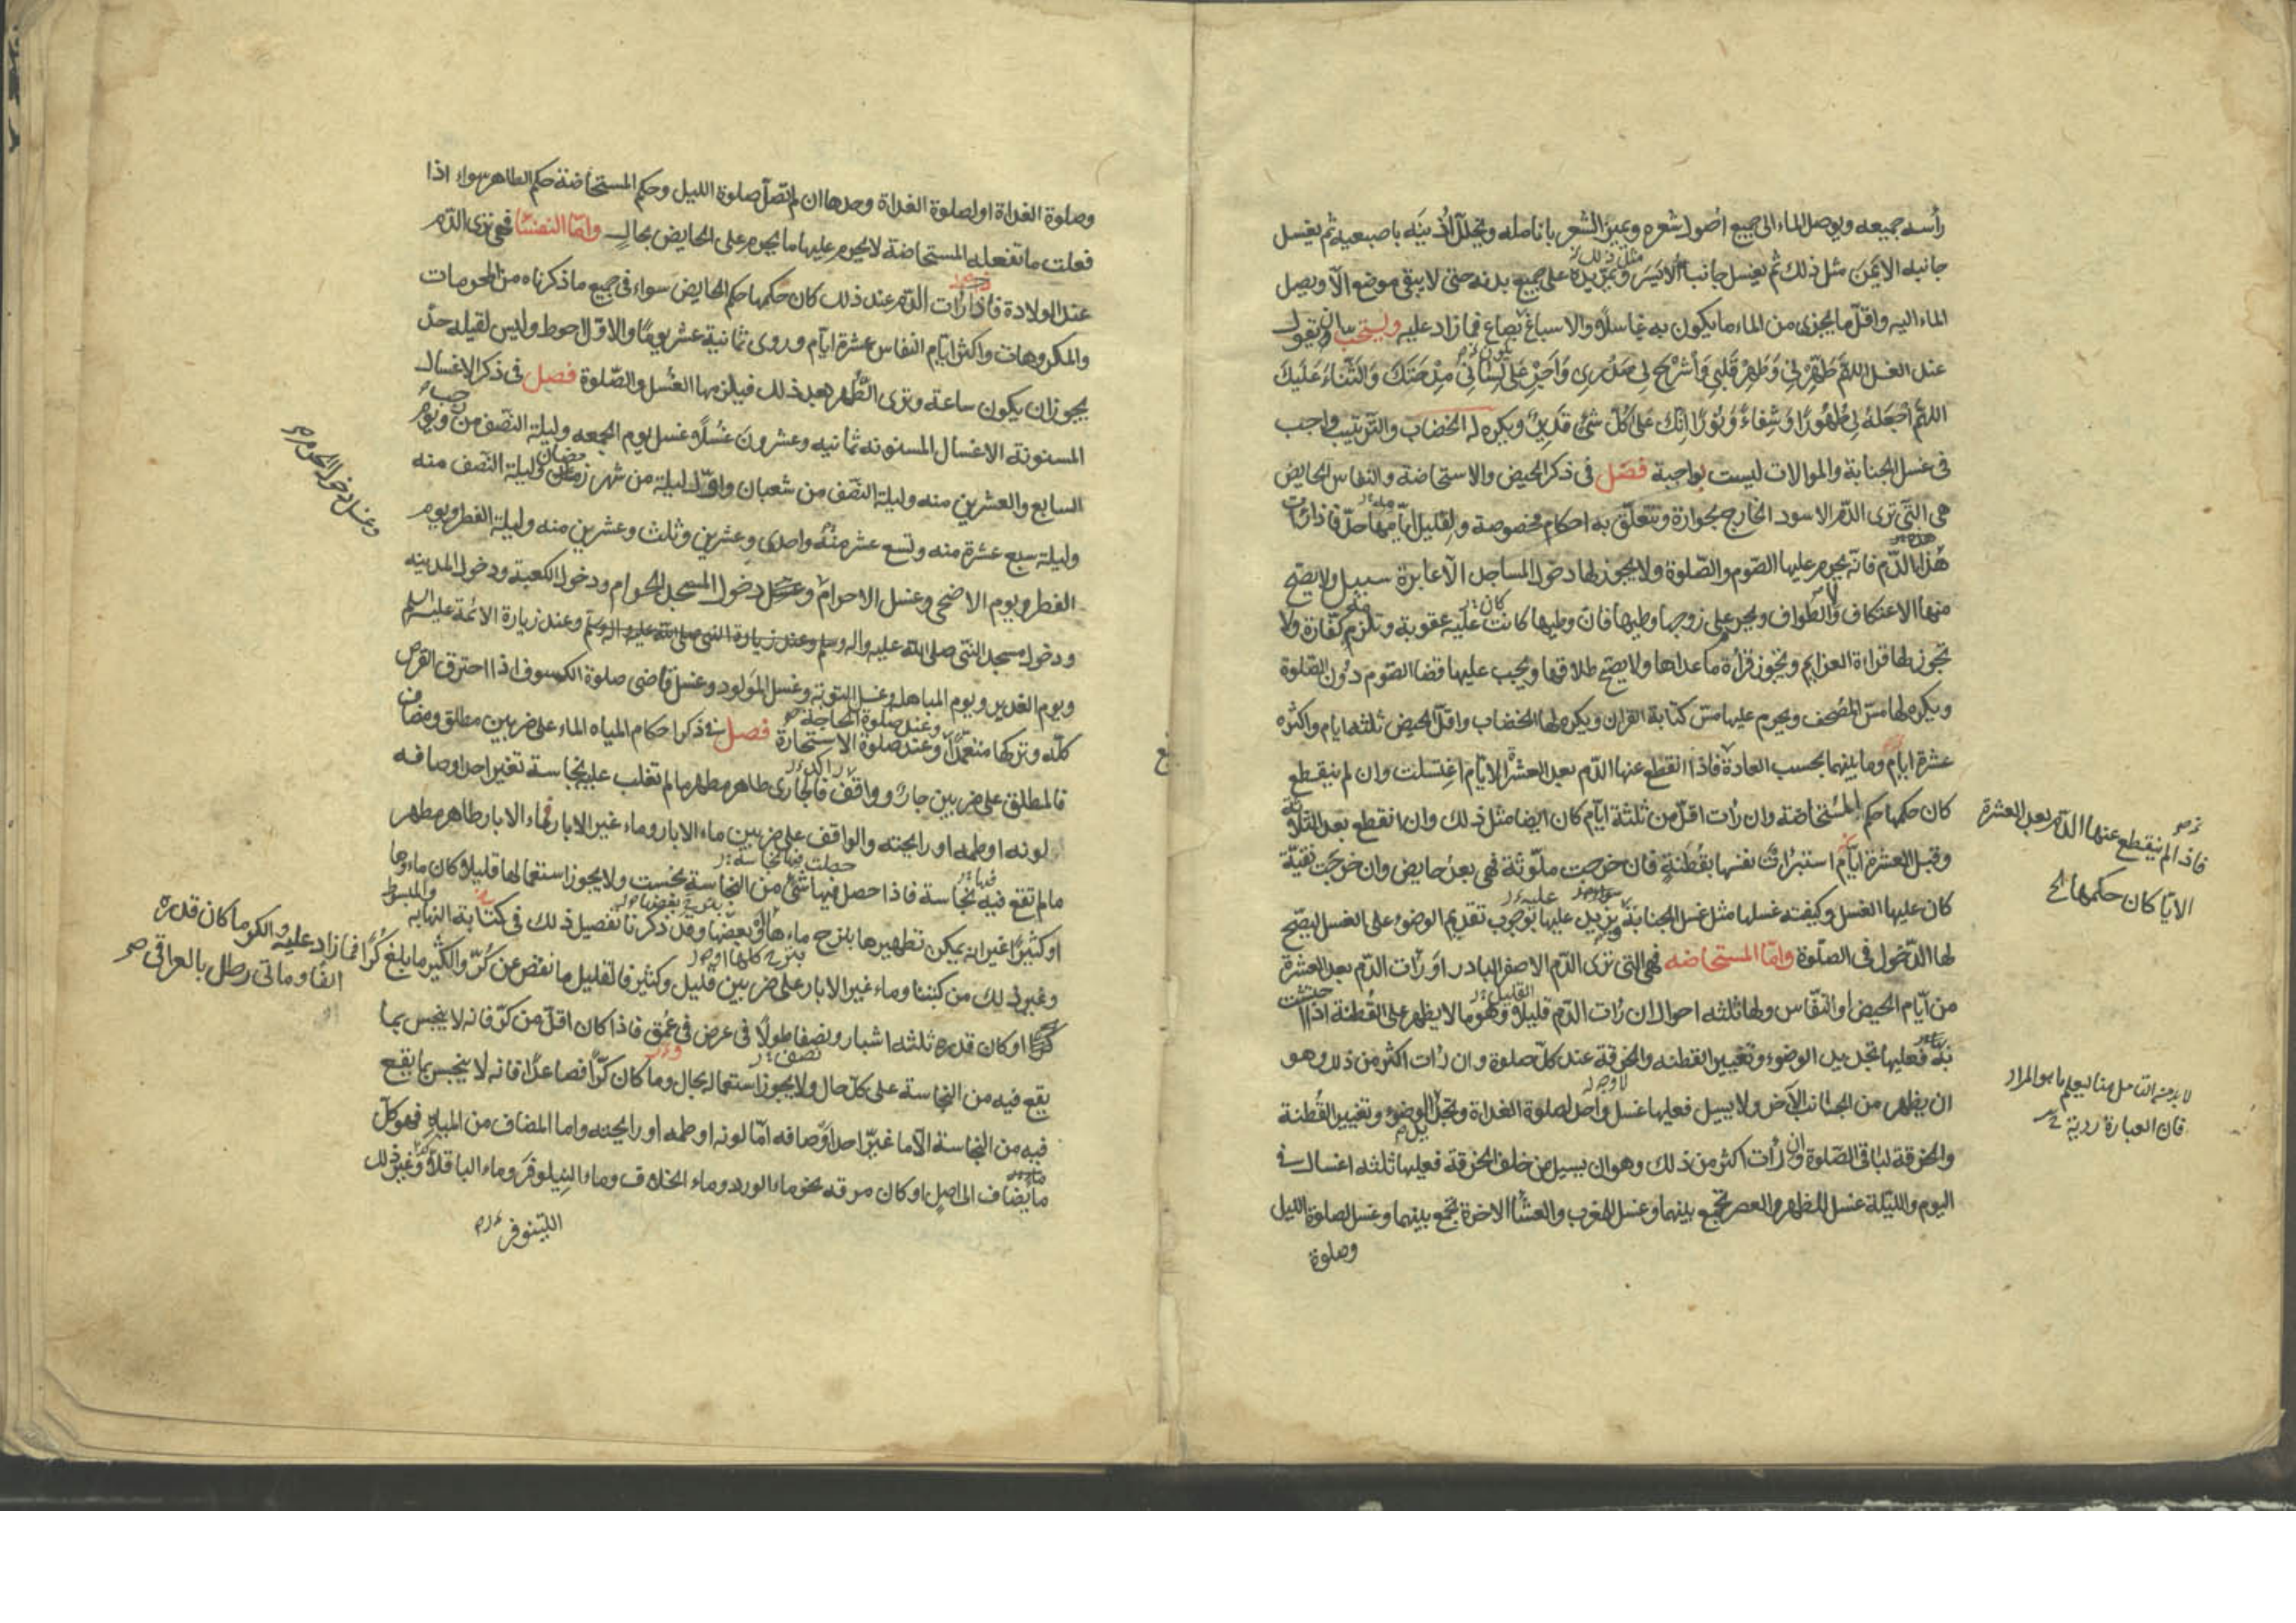 رأسه جميعه ويوصل الماء الى جميع اصول شعره ويميز الشعر بانامله ويخلل اذنيه باصبعيه ثم يغسل
جانبه الايمن مثل ذلك ثم يغسل جانبه الايسر مثل ذلك ويمر يده على جميع بدنه حتى لا يبقى موضع الا ويصل
الماء اليه واقل ما يجزى من الماء ما يكون به غاسلا والاسباغ بصاع فما زاد عليه ويستحب ان يقول
عند الغسل اللهم طهرني وطهر قلبي واشرح لي صدري واجر على لساني مدحتك والثناء عليك
اللهم اجعله لي طهورا وشفاء ونورا انك على كل شئ قدير ويكره له الخضاب والترتيب واجب
في غسل الجنابة والموالات ليست بواجبة فصل في ذكر الحيض والاستحاضة والنفاس الحايض
هي التي ترى الدم الاسود الخارج بحرارة ويتعلق به احكام مخصوصة ولقليل ايامها حد فاذا رات
هذا الدم فانه يحرم عليها الصوم والصلوة ولا يجوز لها دخول المساجد الا عابرة سبيل ولا يصح
منها الاعتكاف ولا الطواف ويحرم على زوجها وطيها فان وطيها كانت عليه عقوبة وتلزم كفارة ولا
تجوز لها قراءة العزايم ويجوز قراءة ما عداها ولا يصح طلاقها ويجب عليها قضا الصوم دون الصلوة
ويكره لها مس المصحف ويحرم عليها مس كتابة القران ويكره لها الخضاب واقل الحيض ثلثه ايام واكثره
عشرة ايام وما بينهما بحسب العادة فاذا انقطع عنها الدم بعد العشرة الايام اغتسلت وان لم ينقطع
كان حكمها حكم المستحاضة وان رات اقل من ثلثة ايام كان ايضا مثل ذلك وان انقطع بعد الثلاثة
وقبل العشرة ايام استبرات نفسها بقطنة فان خرجت ملوثة فهي بعد حايض وان خرجت نقية
كان عليها الغسل وكيفته غسلها مثل غسل الجنابة ويزيد عليها بوجوب تقديم الوضوء على الغسل ليصح
لها الدخول في الصلوة واما المستحاضه فهي التي ترى الدم الاصفر البارد او رات الدم بعد العشرة
من ايام الحيض او النفاس ولها ثلثه احوال ان رات الدم قليلا وهو ما لا يظهر على القطنة اذا احتشت
به فعليها تجديد الوضوء وتغيير القطنه والخرقة عند كل صلوة وان رات اكثر من ذلك وهو
ان يظهر من الجانب الآخر ولا يسيل فعليها غسل واحد لصلوة الغداة وتجديد الوضوء وتغيير القطنة
والخرقة لباقي الصلوة وان رأت اكثر من ذلك وهو ان يسيل من خلف الخرقة فعليها ثلثه اغسال في
اليوم والليلة غسل للظهر والعصر تجمع بينهما وغسل للمغرب والعشاء الاخرة تجمع بينهما وغسل لصلوة الليل
وصلوة
فاذا لم ينقطع عنها الدم بعد العشرة
الايام كان حكمها الخ
لا بد من التامل هنا ليعلم ما هو المراد
فان العبارة ردية
وصلوة الغداة او لصلوة الغداة وحدها ان لم تصل صلوة الليل وحكم المستحاضة حكم الطاهر سواء اذا
فعلت ما تفعله المستحاضة لا يحرم عليها ما يحرم على الحايض بحال واما النفساء فهي ترى الدم
عند الولادة فاذا رات الدم عند ذلك كان حكمها حكم الحايض سواء في جميع ما ذكرناه من المحرمات
والمكروهات واكثر ايام النفاس عشرة ايام وروى ثمانية عشر يوما والاول احوط وليس لقليله حد
يجوز ان يكون ساعة وترى الطهر بعد ذلك فيلزمها الغسل والصلوة فصل في ذكر الاغسال
المسنونة الاغسال المسنونه ثمانيه وعشرون غسلا غسل يوم الجمعه وليلة النصف من رجب ويوم
السابع والعشرين منه وليلة النصف من شعبان واول ليلة من شهر رمضان وليلة النصف منه
وليلة سبع عشرة منه وتسع عشر منه واحدى وعشرين وثلث وعشرين منه وليلة الفطر ويوم
الفطر ويوم الاضحى وغسل الاحرام وعند دخول المسجد الحرام ودخول الكعبة ودخول المدينه
ودخول مسجد النبي صلى الله عليه واله وسلم وعند زيارة النبي صلى الله عليه اله وسلم وعند زيارة الائمة عليهم السلم
ويوم الغدير ويوم المباهله وغسل التوبة وغسل المولود وغسل قاضى صلوة الكسوف اذا احترق القرص
كله وتركها متعمدا وعند صلوة الحاجة وعند صلوة الاستخارة فصل في ذكر احكام المياه الماء على ضربين مطلق ومضاف
فالمطلق على ضربين جار وواقف فالجارى طاهر مطهر ما لم تغلب عليه نجاسة تغير احد اوصافه
لونه او طعمه او رايحته والواقف على ضربين ماء الابار وماء غير الابار فماء الابار طاهر مطهر
ما لم تقع فيه نجاسة فاذا حصل فيها شئ من النجاسة نجست ولا يجوز استعمالها قليلا كان ماءوها
او كثيرا غير انه يمكن تطهيرها بنزح ماءها او بعضها وقد ذكرنا تفصيل ذلك في كتابة النهاية والمبسوط
وغير ذلك من كتبنا وماء غير الابار على ضربين قليل وكثير فالقليل ما نقص عن كر والكثير ما بلغ كرا فما زاد عليه والكر ما كان قدره
الفا وماتى رطل بالعراقى
او كان قدره ثلثه اشبار ونصفا طولا في عرض في عمق فاذا كان اقل من كر فانه لا ينجس بما
يقع فيه من النجاسة على كل حال ولا يجوز استعماله بحال وما كان كرا فصاعدا فانه لا ينجس بما يقع
فيه من النجاسة الا ما غير احد اوصافه اما لونه او طعمه او رايحته واما المضاف من المياه فهو كل
ما يضاف الى اصل او كان مرقه نحو ماء الورد وماء الخلاف وماء النيلوفر وماء الباقلا وغير ذلك
اللينوفر